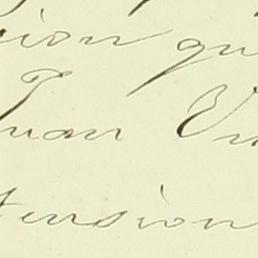 ion qu
Juan Vi
tension